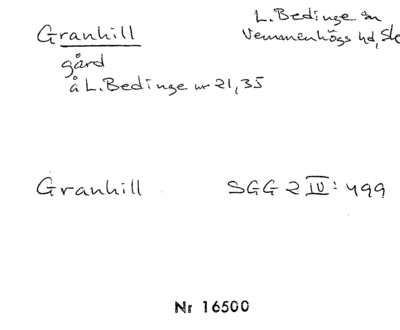 Granhill
L. Bedinge sn
Vemmenhögs hd, Sk
gård
å L. Bedinge nr 21, 35
Granhill
SGG 2 IV: 499
Nr 16500